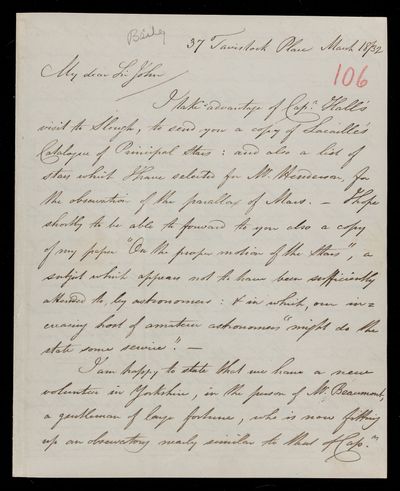 Baily
37 Tavistock Place March 18/32
106
My dear Sir John
I take advantage of Capn. Hall's
visit to Slough, to send you a copy of Lacaille's
Catalogue of Principal Stars: and also a list of
stars which I have selected for Mr. Henderson, for
the observation of the parallax of Mars. — I hope
shortly to be able to forward to you also a copy
of my paper "On the proper motion of the Stars", a
subject which appears not to have been sufficiently
attended to, by astronomers: & in which, our in=
creasing host of amateur astronomers "might do the
state some service". —
I am happy to state that we have a new
volunteer in Yorkshire, in the person of Mr. Beaumont,
a gentleman of large fortune, who is now fitting
up an observatory nearly similar to that of Capn.